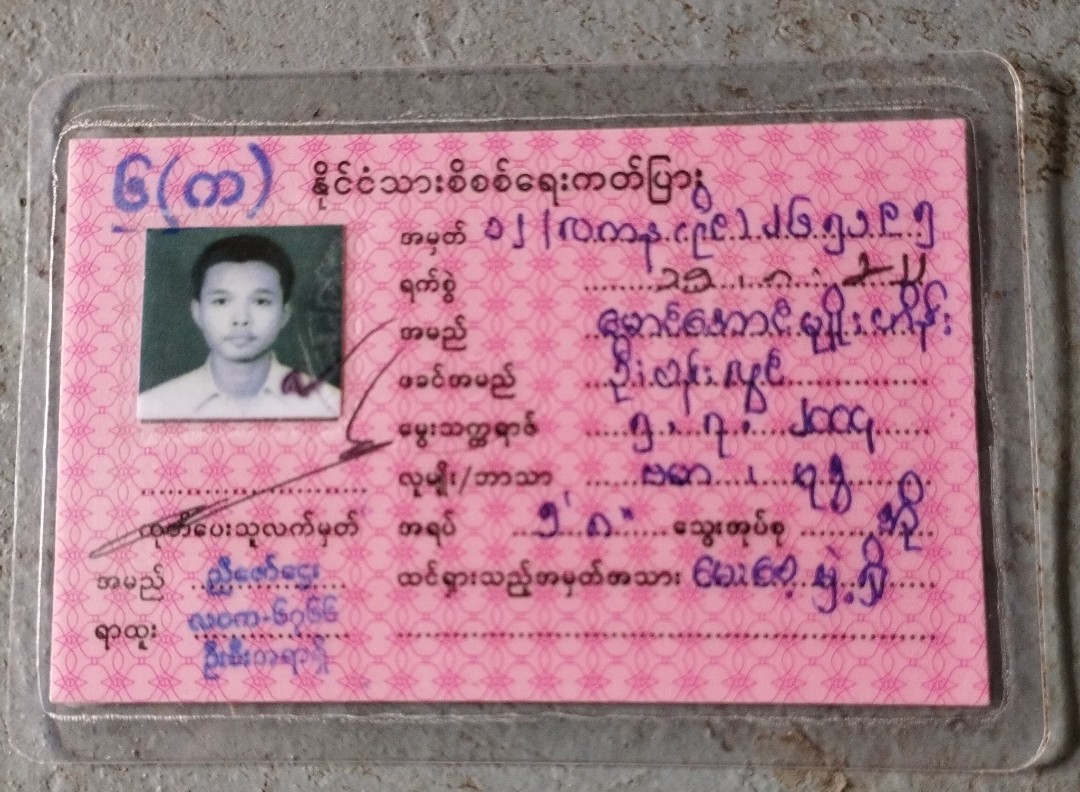 ၆(က) နိုင်ငံသားစိစစ်ရေးကတ်ပြား
အမှတ် ၁၂/လကန(နိုင်)၂၆၅၁၉၅
ရက်စွဲ
အမည် မောင်အောင်မျိုးထိန်း
ဖခင်အမည် ဦးဝန်းလွင်
မွေးသက္ကရာဇ် ၅၊ ၇၊ ၂၀၀၄
လူမျိုး/ဘာသာ ဗမာ ၊ ဗုဒ္ဓ
အရပ် ၅' ၈" သွေးအုပ်စု အို
ထင်ရှားသည့်အမှတ်အသား မေးစေ့ မှဲ့ရှိ
ထုတ်ပေးသူလက်မှတ်
အမည် ညီဇော်ဌေး
ရာထူး လဝက-၆၇၆၆
ဦးစီးအရာရှိ